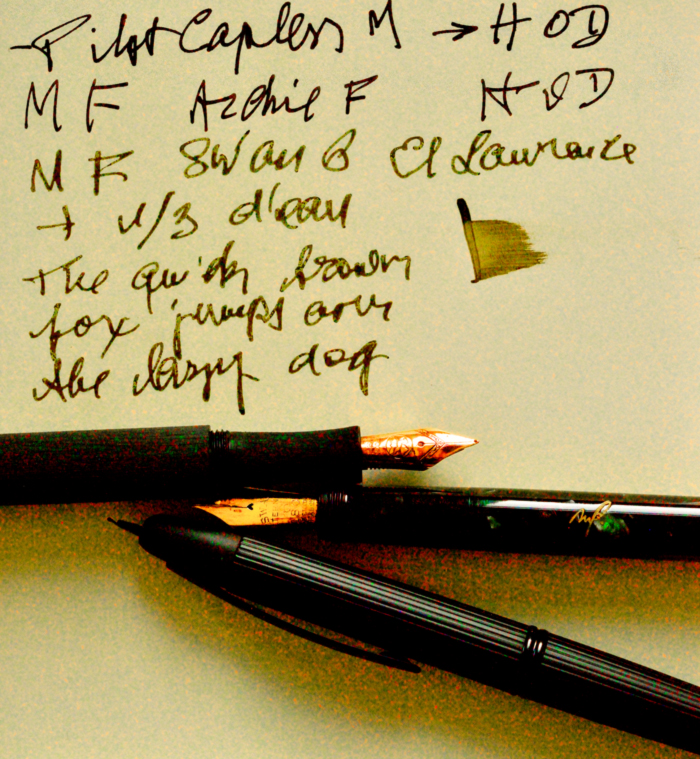 Pilot Capless M → HOD
MF Archie F HOD
MF Swan B El Lawrence
→ 1/3 d'eau
The quick brown
fox jumps over
the lazy dog